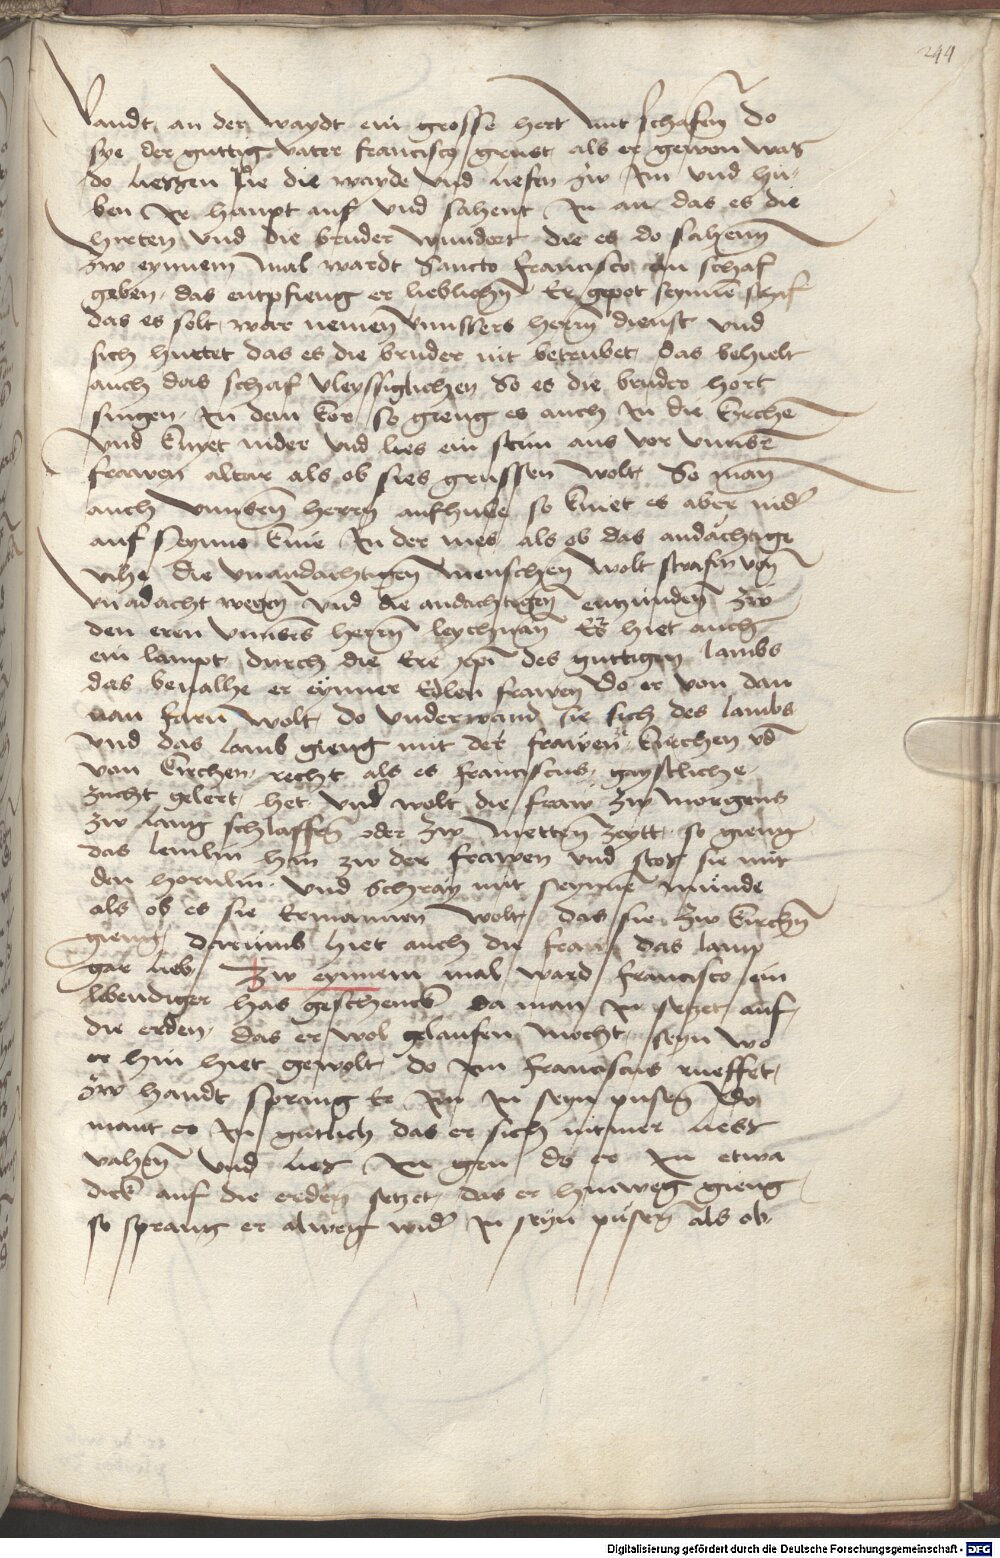 244
landt an der waydt ein grosse hert mit schafen do
sye der guttig vater francisco gruest als er gewon was
do liessen sie die wayde vnd liefen zw im vnd hu-
ben Ir haupt auf vnd sahent In an das es die
hirten vnd die bruder wundert die es do sahenn
zw eynnem mal wardt Sancto francisco ein schaf
geben das entpfieng er lieblichen Er gepot seynnē schaf
das es solt war nemen vnnssers herrn dienst vnd
sich huttet das es die bruder nit betrubet das behielt
auch das schaf vleyssiglichen So es die bruder hort
singen In dem kor so gieng es auch In die kirche
vnd knyet nider vnd lies ein stim aus vor vnnser
frawen altar als ob sies grussen wolt So man
auch vnnsern herrn aufhube so kniet es aber nider
auf seynne knie In der mes als ob das andächtige
vihe die vnandachtigen menschen wolt strafen von
vnadacht wegen vnd die andachtigen entzunden zw
den eren vnnsers herrn leychnam Er hiet auch
ein lampt durch die Ere xpi des guttigen lambs
das beualhe er eynner Edlen frawen Do er von dan
nan farn wolt do vnderwand sie sich des lambs
vnd das lamb gieng mit der frawen kirchen vnd
von kirchen recht als es franciscus gaystliche
zucht gelert het vnd wolt die fraw zw morgens
zw lang schlaffen oder zw metten zeytt so gieng
das lemlin hin zw der frawen vnd stos sie mit
den hornlin vnd Schray mit seynnē munde
als ob es sie Ermannen wolt das sie zw kirchen
gieng darumb hiet auch die fraw das lamp
gar lieb Zw eynnem mal ward francisco ein
lbendiger has geschenckt da man In setzet auf
die erden das er wol gelaufen mocht seyn wo
er hin hiet gewolt do Im franciscus rueffet
zw handt sprang Er Im In seyn pusen Do
mant er In gutlich das er sich nimmer liesz
vahen vnd liesz In gen do er In etwa
dick auf die erden setzet das er hinweg gieng
so sprang er alweg wider In seyn pusen als ob
Digitalisierung gefördert durch die Deutsche Forschungsgemeinschaft - DFG